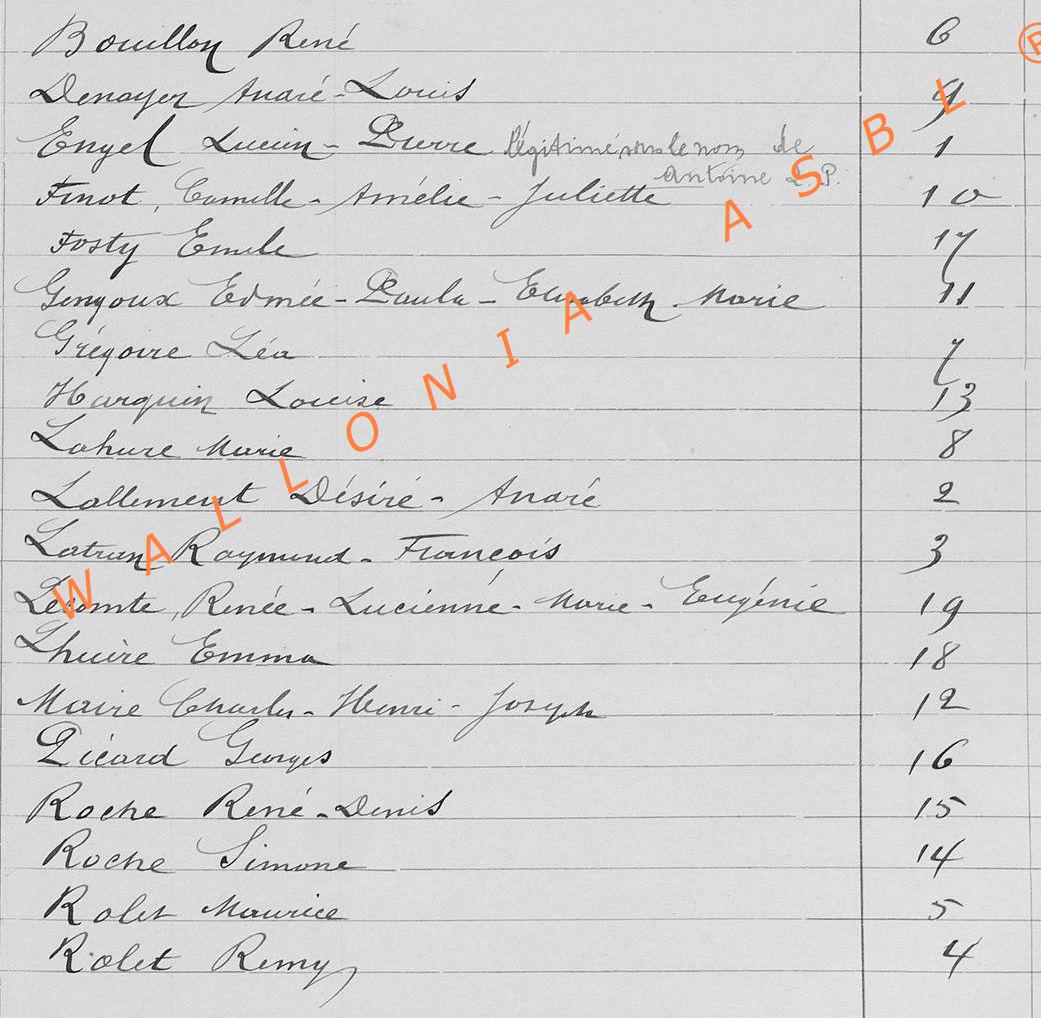 Bouillon René 6
Denayer André-Louis 9
Engel Lucien-Pierre Légitimé sous le nom de 1
Antoine L. P.
Finot, Camille-Amélie-Juliette 10
Fosty Emile 17
Gengoux Edmée-Paula-Elisabeth Marie 11
Grégoire Léa 7
Harquin Louise 13
Lahure Marie 8
Lallement Désiré-André 2
Latran Raymond-François 3
Lecomte, Renée-Lucienne-Marie-Eugénie 19
Lhuire Emma 18
Maire Charles-Henri-Joseph 12
Picard Georges 16
Roche René-Denis 15
Roche Simone 14
Rolet Maurice 5
Rolet Remy 4
WALLONIA ASBL ®